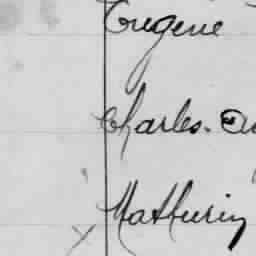 Eugène
Charles.
Mathurin